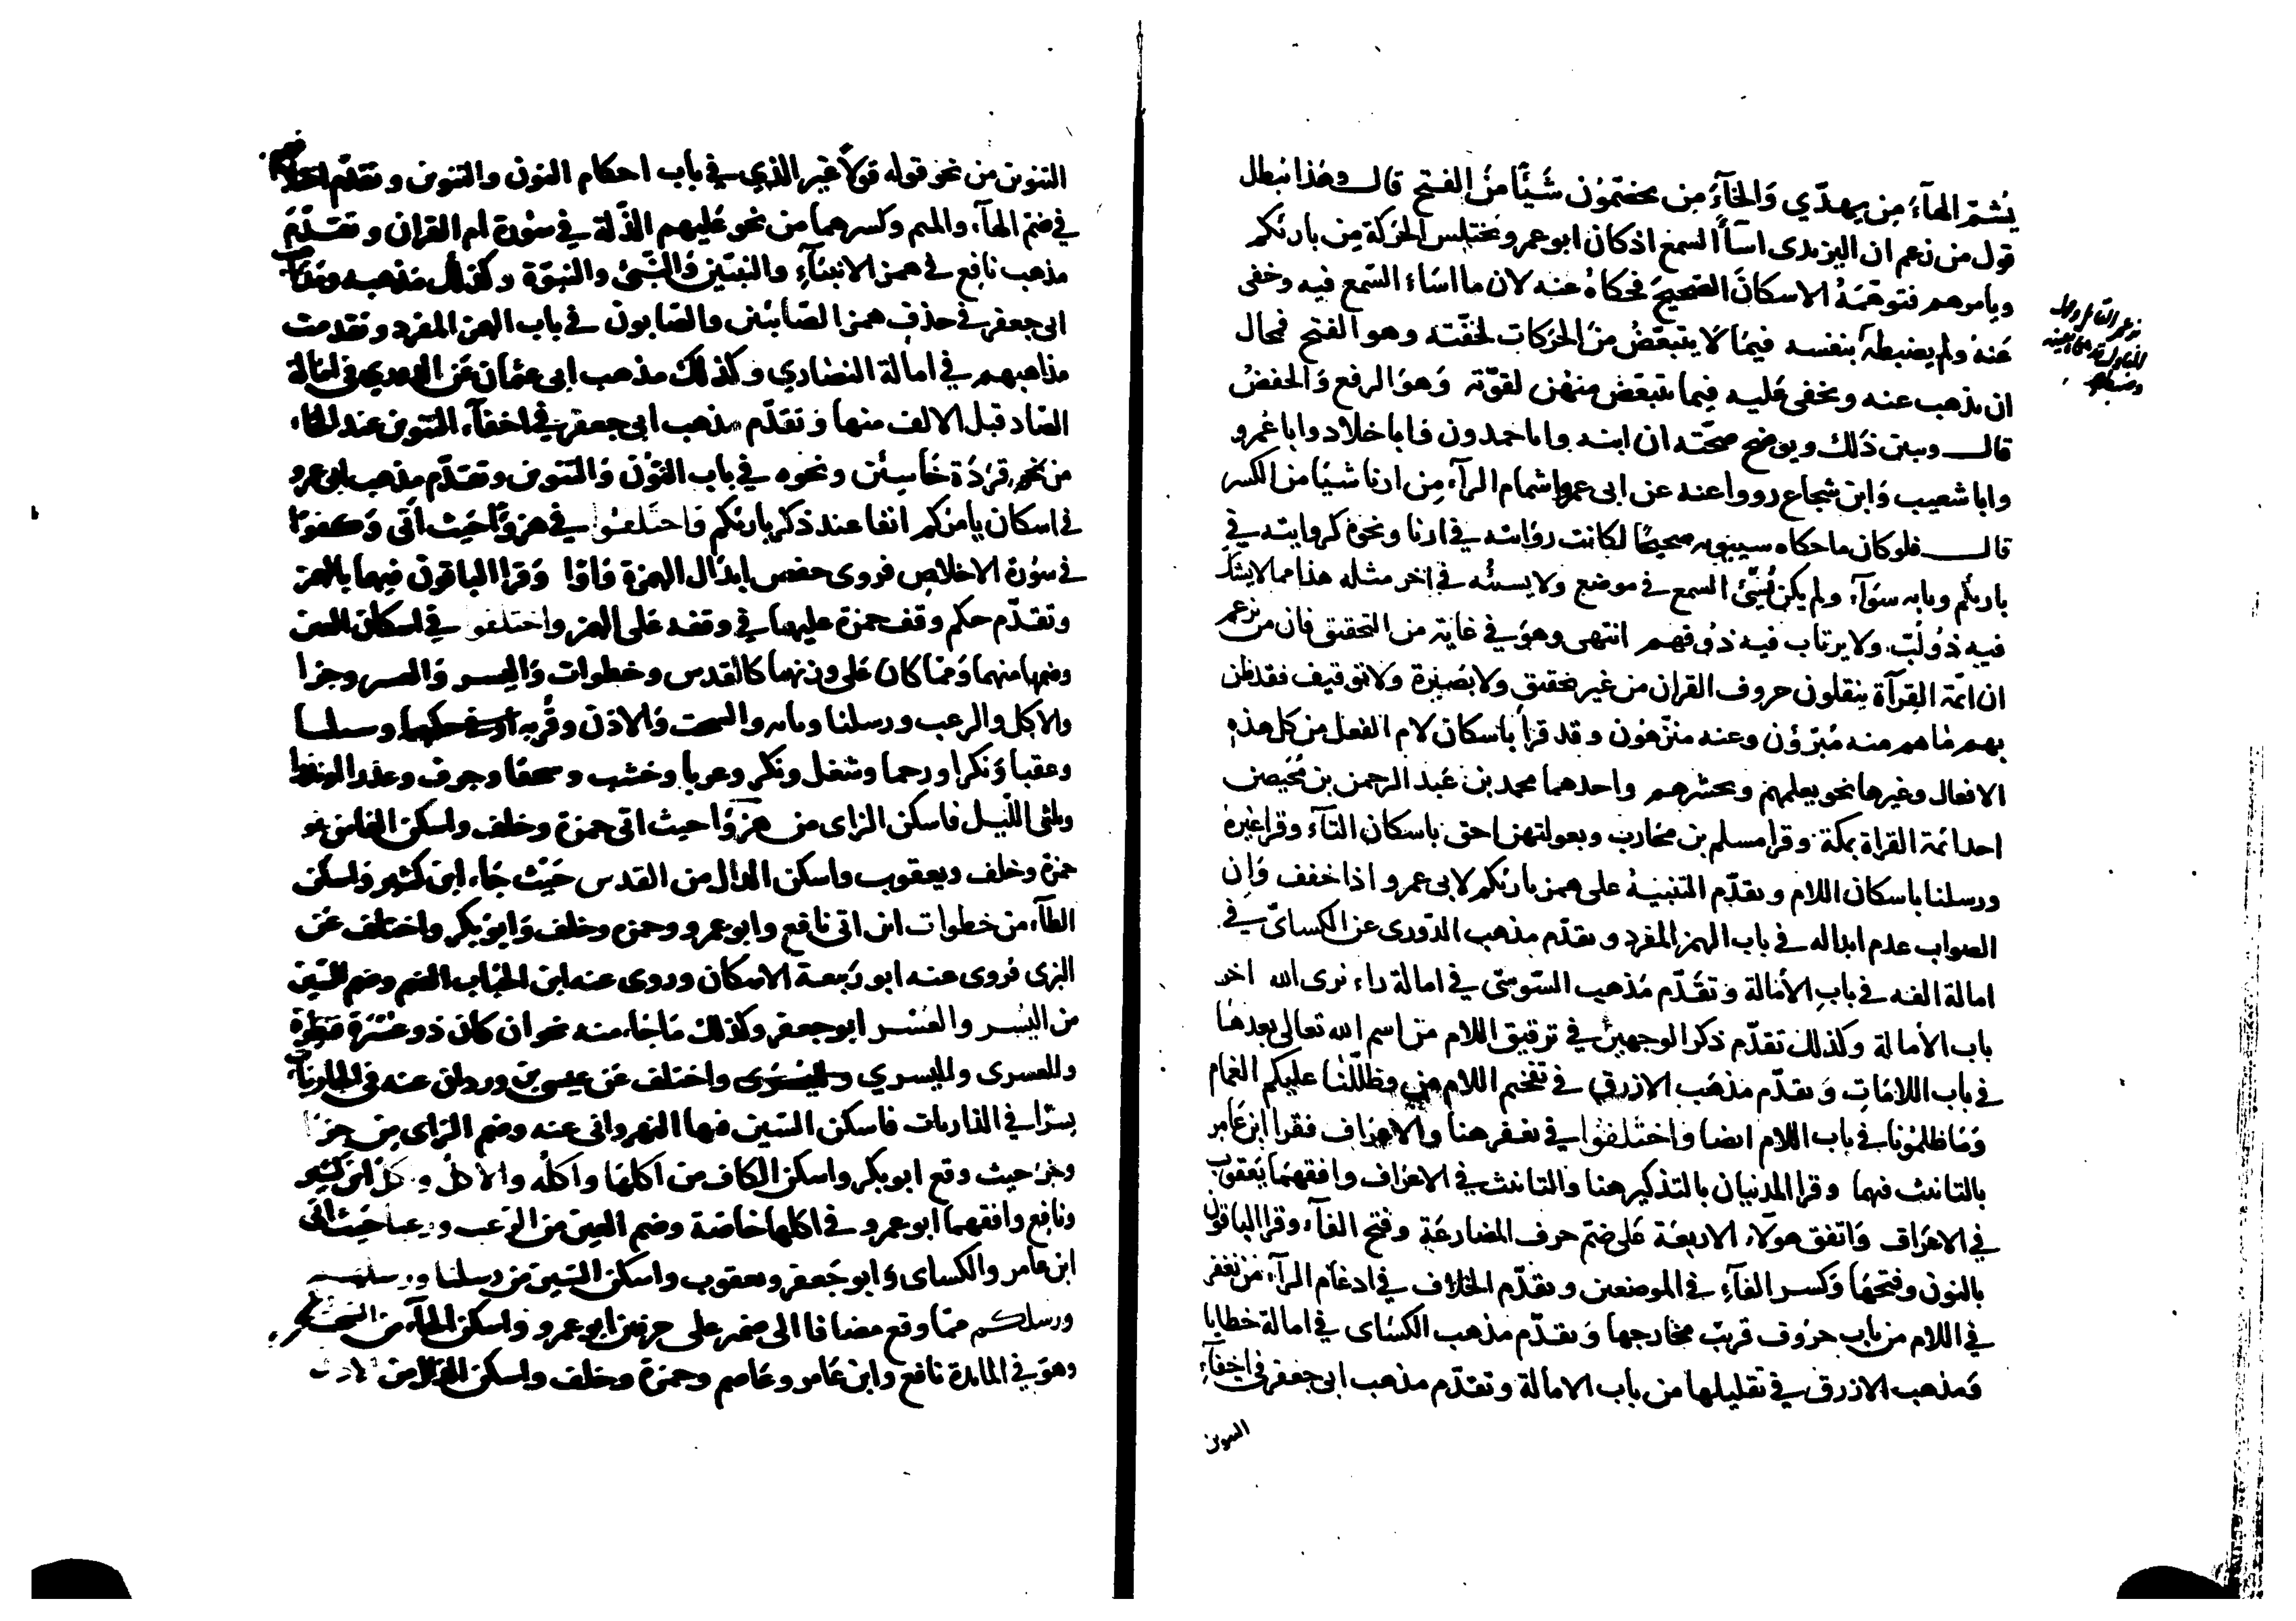 يُشمّ الهآءَ مِن يهدّي وَالخآءَ مِن يخصّمُون شَيئًا منُ الفتح قال وهَذا يبطل
قول من زعم ان اليزيدى اسآأ السمع اذ كان ابو عمرو يختلس الحركة مِن بارئكم
ويامرهم فتوهّمهُ الاسكانَ الصّحيحَ فحكاهُ عنه لان ما اسَاء السّمع فيه وخفى
عَنهُ ولم يضبطهُ بنفسه فيمَا لا يتبعّضُ مِنَ الحَركات لخفّته وهو الفتح فمحال
ان يذهب عنه ويخفى عَليه فيما يتبعّض منهُن لقوّته وَهوَ الرفع وَالخفضُ
قال ويبين ذَلك ويوضح صحّته ان ابنه وابا حمدون وابا خلاد وابا عُمرو
وابا شعيب وَابن شجاع رووا عنه عن ابى عمرو اشمام الرآء مِن ارنا شيئا من الكسر
قال فلو كان ما حكاه سيبويه صحيحًا لكانت روَايته في ارنا ونحوه كروايته في
بارئكم وبابه سوَآء ولم يكن يُسِئ السمع في موضع ولا يسئُه في اخر مثله هذا مما لا يشك
فيه ذوُ لُبّ ولا يرتاب فيه ذوُ فهم انتهى وهوَ في غاية من التحقيق فان من يزعم
ان ائمّة القرآة ينقلون حروف القران من غير تحقيق ولا بَصيرة ولا توقيف فقد ظن
بهم مَا هم منه مُبرّؤن وعنه منزّهُون وقد قرأ باسكان لام الفعل من كل هذهِ
الافعال وغيرها نحو يعلمهم ويحشرهم واحدهما محمد بن عَبد الرحمن بن مُحَيصن
احد ائمة القراة بمكة وقرا مسلم بن محارب وبعولتهن احق باسكان التآء وقرا غيرهُ
ورسلنا باسكان اللام وتقدّم التنبيهُ على همز بارئكم لابى عمرو اذا خفف وَان
الصواب عدم ابداله في باب الهمز المفرد وتقدّم مذهب الدّورى عن الكسائىّ في
امالة الفه في بابِ الأمالة وتقَدّم مَذهب السّوسىّ في امالة راء نرى الله اخر
باب الأمالة وكذلك تقدّم ذكر الوجهين في ترقيق اللام من اسم الله تعالى بعدهَا
في باب اللامَاتِ وَتقدّم مذهَب الازرق في تفخيم اللام من وظلّلنا عليكم الغَمام
وَمَا ظلمُونا في باب اللام ايضا وَاختَلفوُا في نغفر هنا والاعرَاف فقرا ابن عَامر
بالتانيث فيهما وقرا المدنيان بالتذكير هنا والتانيث في الاعرَاف وافقهمَا يَعقوُب
في الاعرَاف وَاتّفق هوَلآء الاربعَة عَلى ضمّ حرف المضارعَةِ وفتح الفآء وقرا الباقون
بالنون وفتحهَا وَكسر الفآءِ في الموضعين وتقدّم الخلاف في ادغام الرآء من نغفر
في اللام من باب حرُوف قربت مخارجها وَتقدّم مذهب الكسَاى في امالة خطايا
وَمذهب الازرق في تقليلها من باب الامالة وتقدّم مذهب ابى جعفر في اخفآءِ
التنوين
التنوين من نحو قوله قولاً غير الذي في باب احكام النون والتنوين وتقدّم
في ضم الهآء والميم وكسرهما من نحو عَليهم الذّلة في سُورة ام القران وتقدّمَ
مذهب نافع في همز الانبيَآءِ والنبيّين وَالنّبئ والنبوّة وكذلك مَذهب
ابى جعفر في حذف همز الصّابئين والصّابون في باب الهمز المفرد وتقدمت
مذاهبهم في امالة النصَاري وكذلك مذهب ابى عثمان عَن الدورى في امالة
الصّاد قبل الالف منها وَتقدّم مذهب ابى جعفر في اخفآء التنوين عند الخاء
من نحو قرَدَة خَاسِئين ونحوه في باب النوُن وَالتنوين وتقدّم مذهب ابى عمرو
في اسكان يامرُكم انفا عند ذكر بارئكم فاختلفوُا في هزوًا حَيث اتى وَكفوًا
في سوُرة الاخلاص فروى حفص ابدَال الهمزة وَاوًا وَقرا الباقون فيهما بالهمز
وتقدّم حكم وَقف حمزة عليهما في وقفه عَلى الهمز واختلفوا في اسكان العين
وضمها منهما وَممّا كان عَلى وزنهما كالقدس وخطوات وَاليسر وَالعسر وجزا
والاكل والرعب ورسلنا وبابه والسحت وَالاذن وقُربه وسبلنا
وعقبا وَنكرا ورحما وشغل ونكر وعربا وخشب وسحقا وجرف وعذرا او نذرا
وثلثى اللّيل فاسكن الزاى من هزوًا حيث اتى حمزة وخلف واسكن الفا من
حمزة وخلف ويعقوب واسكن الدال من القدس حَيث جَاء ابن كثير وَاسكن
الطآء من خطوات اين اتى نافع وابو عمرو وحمزة وخلف وَابوُ بكر واختلف عَن
البزى فروى عنه ابو رَبيعة الاسكان وروى عنه ابن الحُباب الضم وضم السّين
من اليُسر والعُسر ابو جعفر وكذلك مَا جَاء منه نحو ان كان ذو عُسرَة فنَظرة
والعسرى واليسري واختلف عَن عيسى بن وردان عنه في الجاريات
يسرًا في الذاريات فاسكن السّين فيها النهروانى عنه وضم الزاى مِن جزءا
وجزء حيث وقع ابو بكر واسكن الكاف من اكلهَا وَاكلُه والاكل وَاكل ابن كثير
ونافع وافقهما ابو عمرو في اكلها خاصَة وضم العين من الرّعب ورعبا حَيث اتى
ابن عامر والكساى وَابو جَعفر ويعقوب واسكن السّين من رسلنا ورسلهم
ورسلكم ممّا وقع مضافا الى ضمير على حرفين ابو عمرو وَاسكن الحآء من السّحت
وهوَ في المائدة نافع وابن عَامر وعَاصم وحمزة وخلف واسكن الذال من الاذن